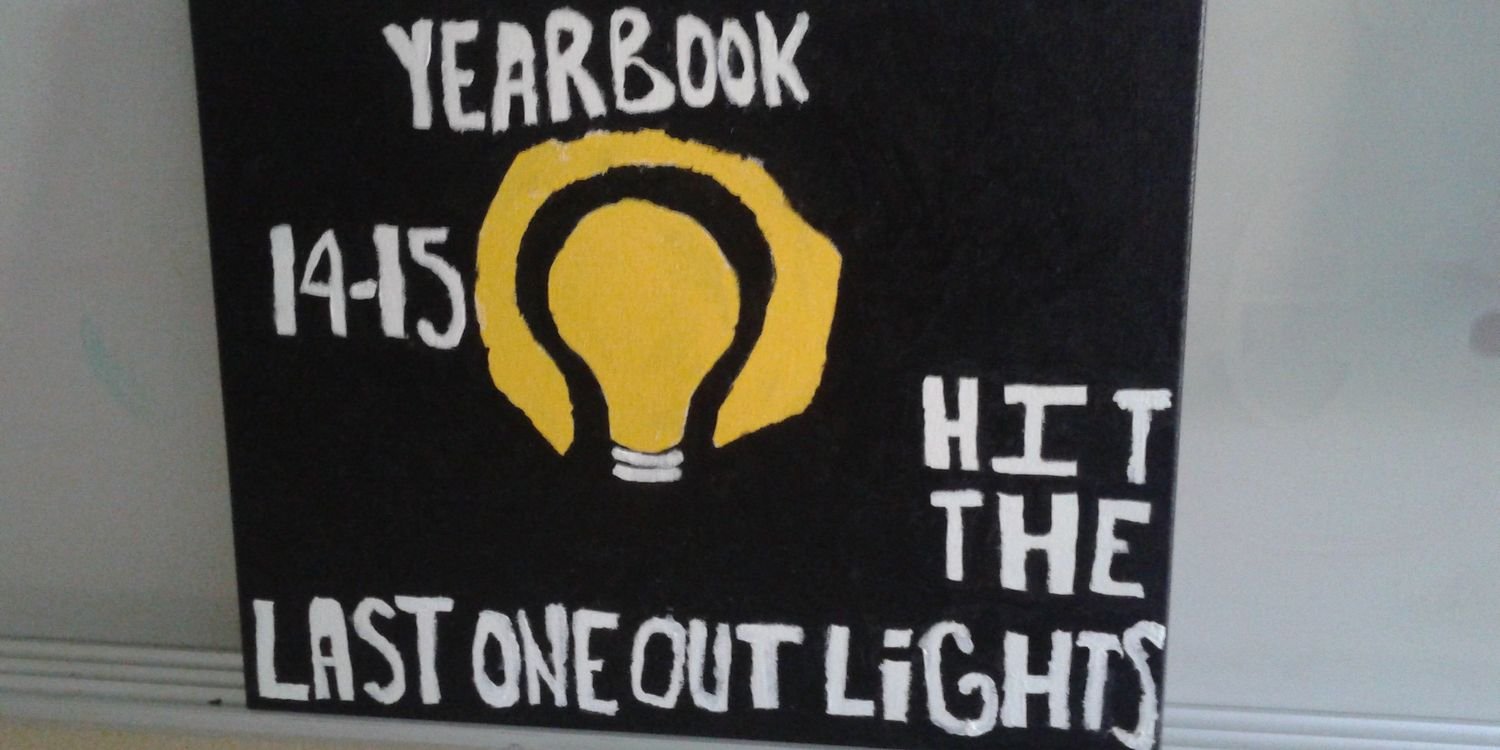 YEARBOOK
14-15
HIT
THE
LAST ONE OUT LiGHTS